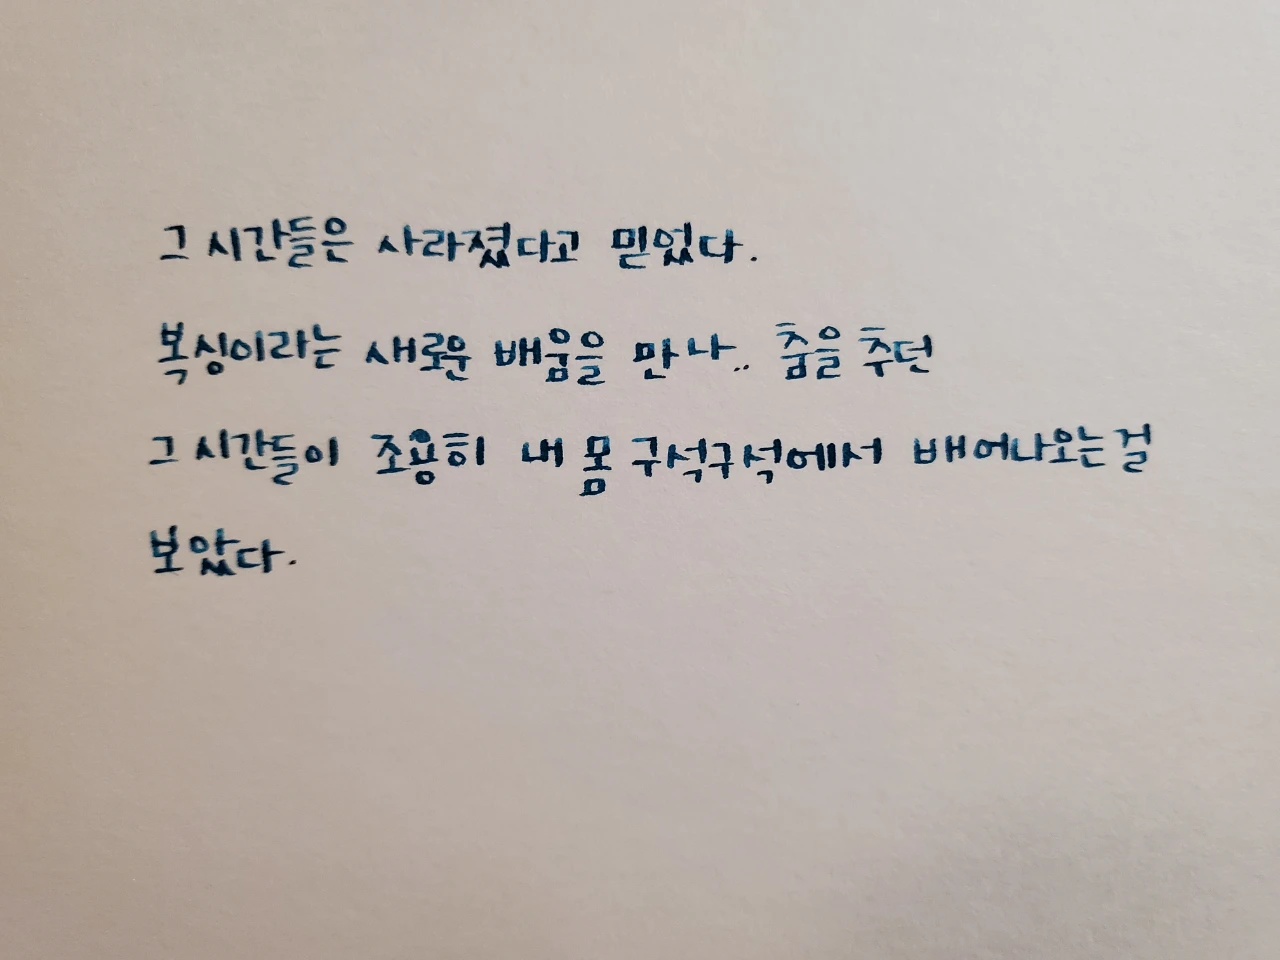 그 시간들은 사라졌다고 믿었다.
복싱이라는 새로운 배움을 만나.. 춤을 추던
그 시간들이 조용히 내 몸 구석구석에서 배어나오는 걸
보았다.